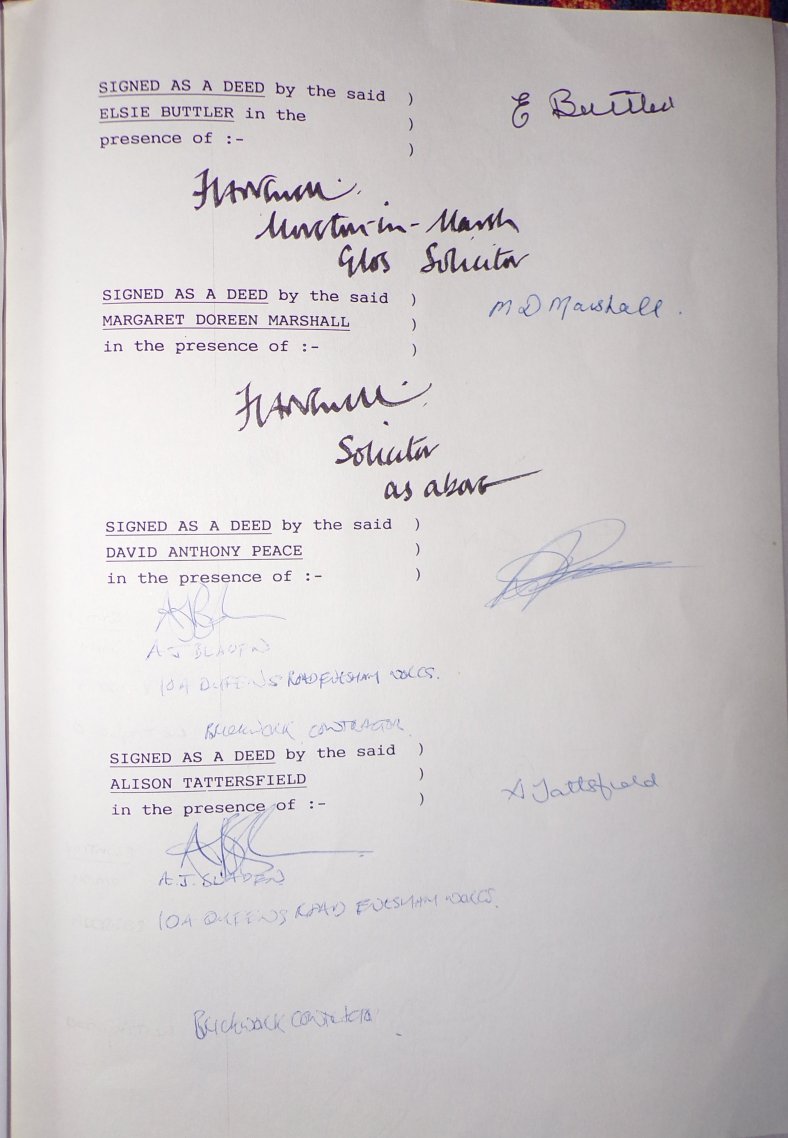 SIGNED AS A DEED by the said )
ELSIE BUTTLER in the )
presence of :- )
E Buttler
Moreton-in-Marsh
Glos Solicitor
SIGNED AS A DEED by the said )
MARGARET DOREEN MARSHALL )
in the presence of :- )
M D Marshall.
Solicitor
as above
SIGNED AS A DEED by the said )
DAVID ANTHONY PEACE )
in the presence of :- )
A J BLADEN
10A QUEENS ROAD EVESHAM WORCS.
BRICKWORK CONTRACTOR
SIGNED AS A DEED by the said )
ALISON TATTERSFIELD )
in the presence of :- )
A Tattsfield
A.J. BLADEN
10A QUEENS ROAD EVESHAM WORCS.
BRICKWORK CONTRACTOR